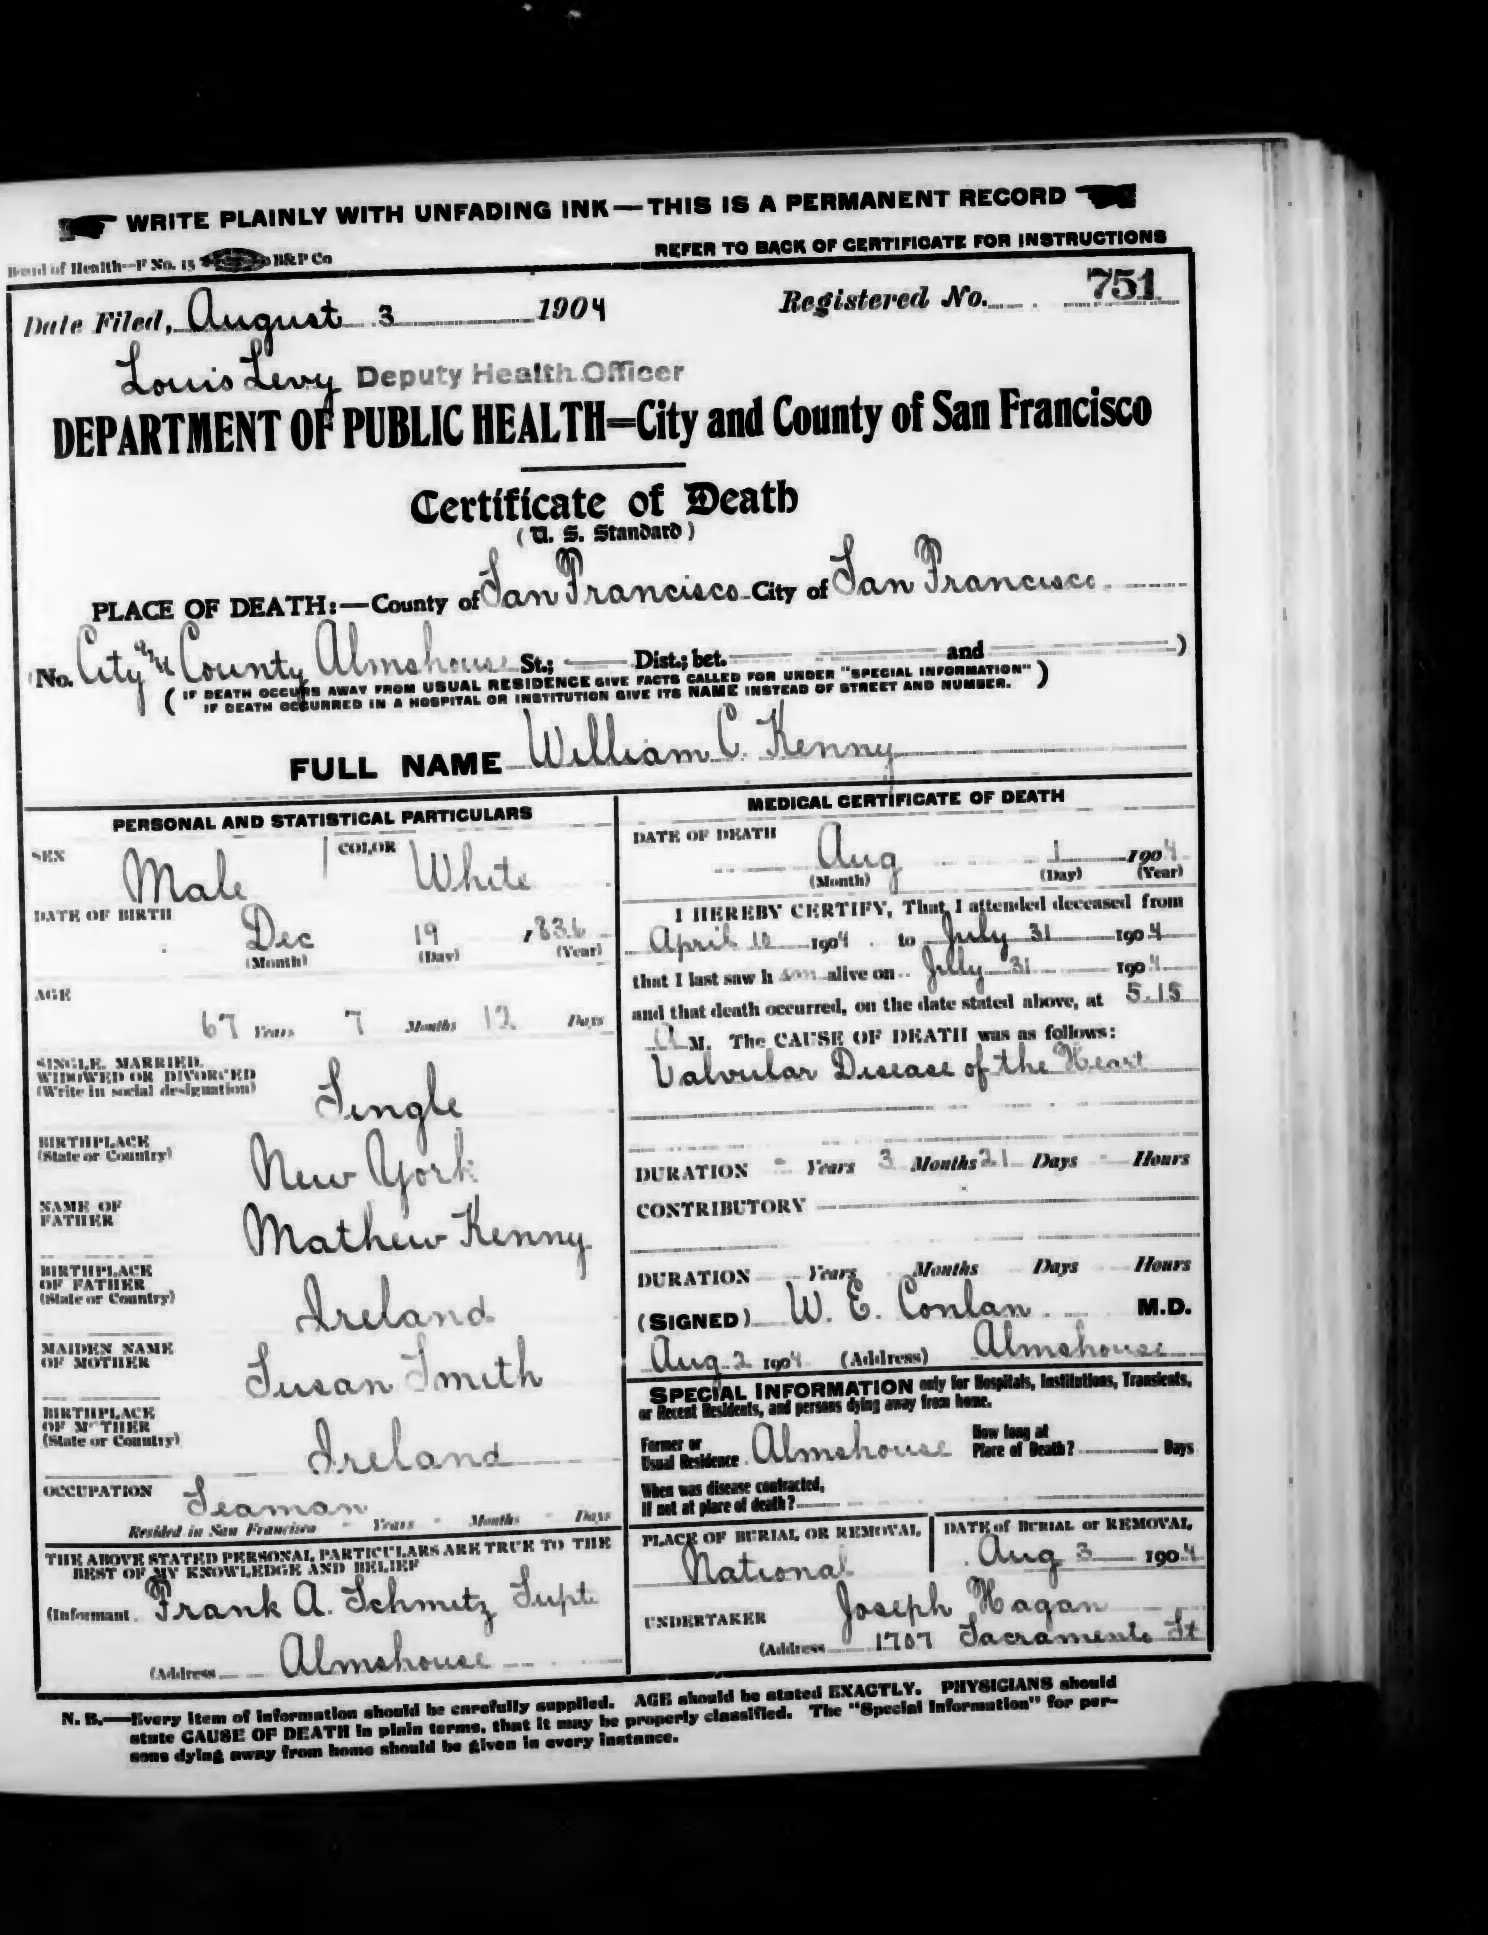 WRITE PLAINLY WITH UNFADING INK—THIS IS A PERMANENT RECORD
Board of Health—F No. 15 H&P Co
REFER TO BACK OF CERTIFICATE FOR INSTRUCTIONS
Date Filed, August 3 1904 Registered No. 751
Louis Levy Deputy Health Officer
DEPARTMENT OF PUBLIC HEALTH=City and County of San Francisco
Certificate of Death
(U. S. Standard)
PLACE OF DEATH:—County of San Francisco City of San Francisco
(No. City and County Almshouse St.; Dist.; bet. and )
( IF DEATH OCCURS AWAY FROM USUAL RESIDENCE GIVE FACTS CALLED FOR UNDER "SPECIAL INFORMATION" )
IF DEATH OCCURRED IN A HOSPITAL OR INSTITUTION GIVE ITS NAME INSTEAD OF STREET AND NUMBER.
FULL NAME William C. Kenny
PERSONAL AND STATISTICAL PARTICULARS
SEX Male COLOR White
DATE OF BIRTH
Dec 19 , 836
(Month) (Day) (Year)
AGE
67 Years 7 Months 12 Days
SINGLE, MARRIED,
WIDOWED OR DIVORCED
(Write in social designation) Single
BIRTHPLACE
(State or Country) New York
NAME OF
FATHER Mathew Kenny
BIRTHPLACE
OF FATHER
(State or Country) Ireland
MAIDEN NAME
OF MOTHER Susan Smith
BIRTHPLACE
OF MOTHER
(State or Country) Ireland
OCCUPATION Seaman
Resided in San Francisco - Years - Months - Days
THE ABOVE STATED PERSONAL PARTICULARS ARE TRUE TO THE
BEST OF MY KNOWLEDGE AND BELIEF
(Informant Frank A. Schmitz Supt
(Address Almshouse
MEDICAL CERTIFICATE OF DEATH
DATE OF DEATH
Aug 1 1904
(Month) (Day) (Year)
I HEREBY CERTIFY, That I attended deceased from
April 10 1904 to July 31 1904
that I last saw h alive on July 31 1904
and that death occurred, on the date stated above, at 5.15
A M. The CAUSE OF DEATH was as follows:
Valvular Disease of the Heart
DURATION - Years 3 Months 21 Days - Hours
CONTRIBUTORY
DURATION Years Months Days Hours
(SIGNED) W. E. Conlan. M.D.
Aug 2 1904 (Address) Almshouse
SPECIAL INFORMATION only for Hospitals, Institutions, Transients,
or Recent Residents, and persons dying away from home.
Former or
Usual Residence Almshouse
How long at
Place of Death? Days
When was disease contracted,
If not at place of death?
PLACE OF BURIAL OR REMOVAL
National
DATE of BURIAL or REMOVAL
Aug 3 1904
UNDERTAKER Joseph Hagan
(Address 1707 Sacramento St
N. B.—Every item of information should be carefully supplied. AGE should be stated EXACTLY. PHYSICIANS should
state CAUSE OF DEATH in plain terms, that it may be properly classified. The "Special Information" for per-
sons dying away from home should be given in every instance.